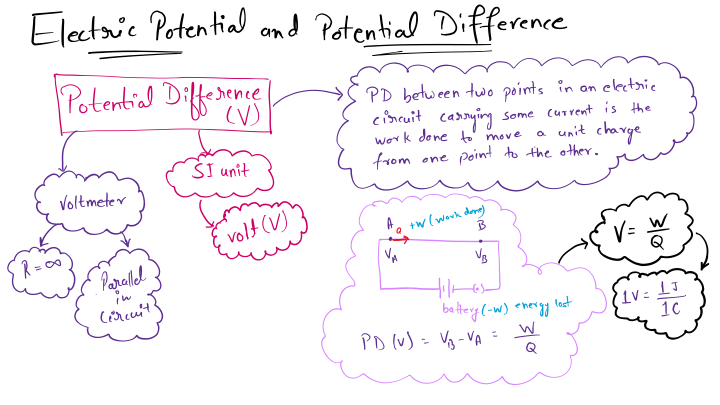 Electric Potential and Potential Difference
Potential Difference
(V)
PD between two points in an electric
circuit carrying some current is the
work done to move a unit charge
from one point to the other.
SI unit
volt (V)
Voltmeter
R = ∞
Parallel
in
Circuit
A
Q
+W (work done)
B
V_A
V_B
battery (-W) energy lost
PD (V) = V_B - V_A = W/Q
V = W/Q
1V = 1J/1C